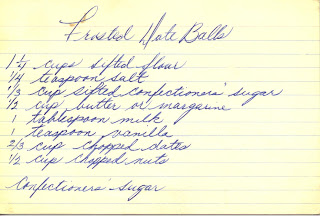 Frosted Date Balls
1 1/4 cups sifted flour
1/4 teaspoon salt
1/3 cup sifted confectioners' sugar
1/2 cup butter or margarine
1 tablespoon milk
1 teaspoon vanilla
2/3 cup chopped dates
1/2 cup chopped nuts
Confectioners' sugar